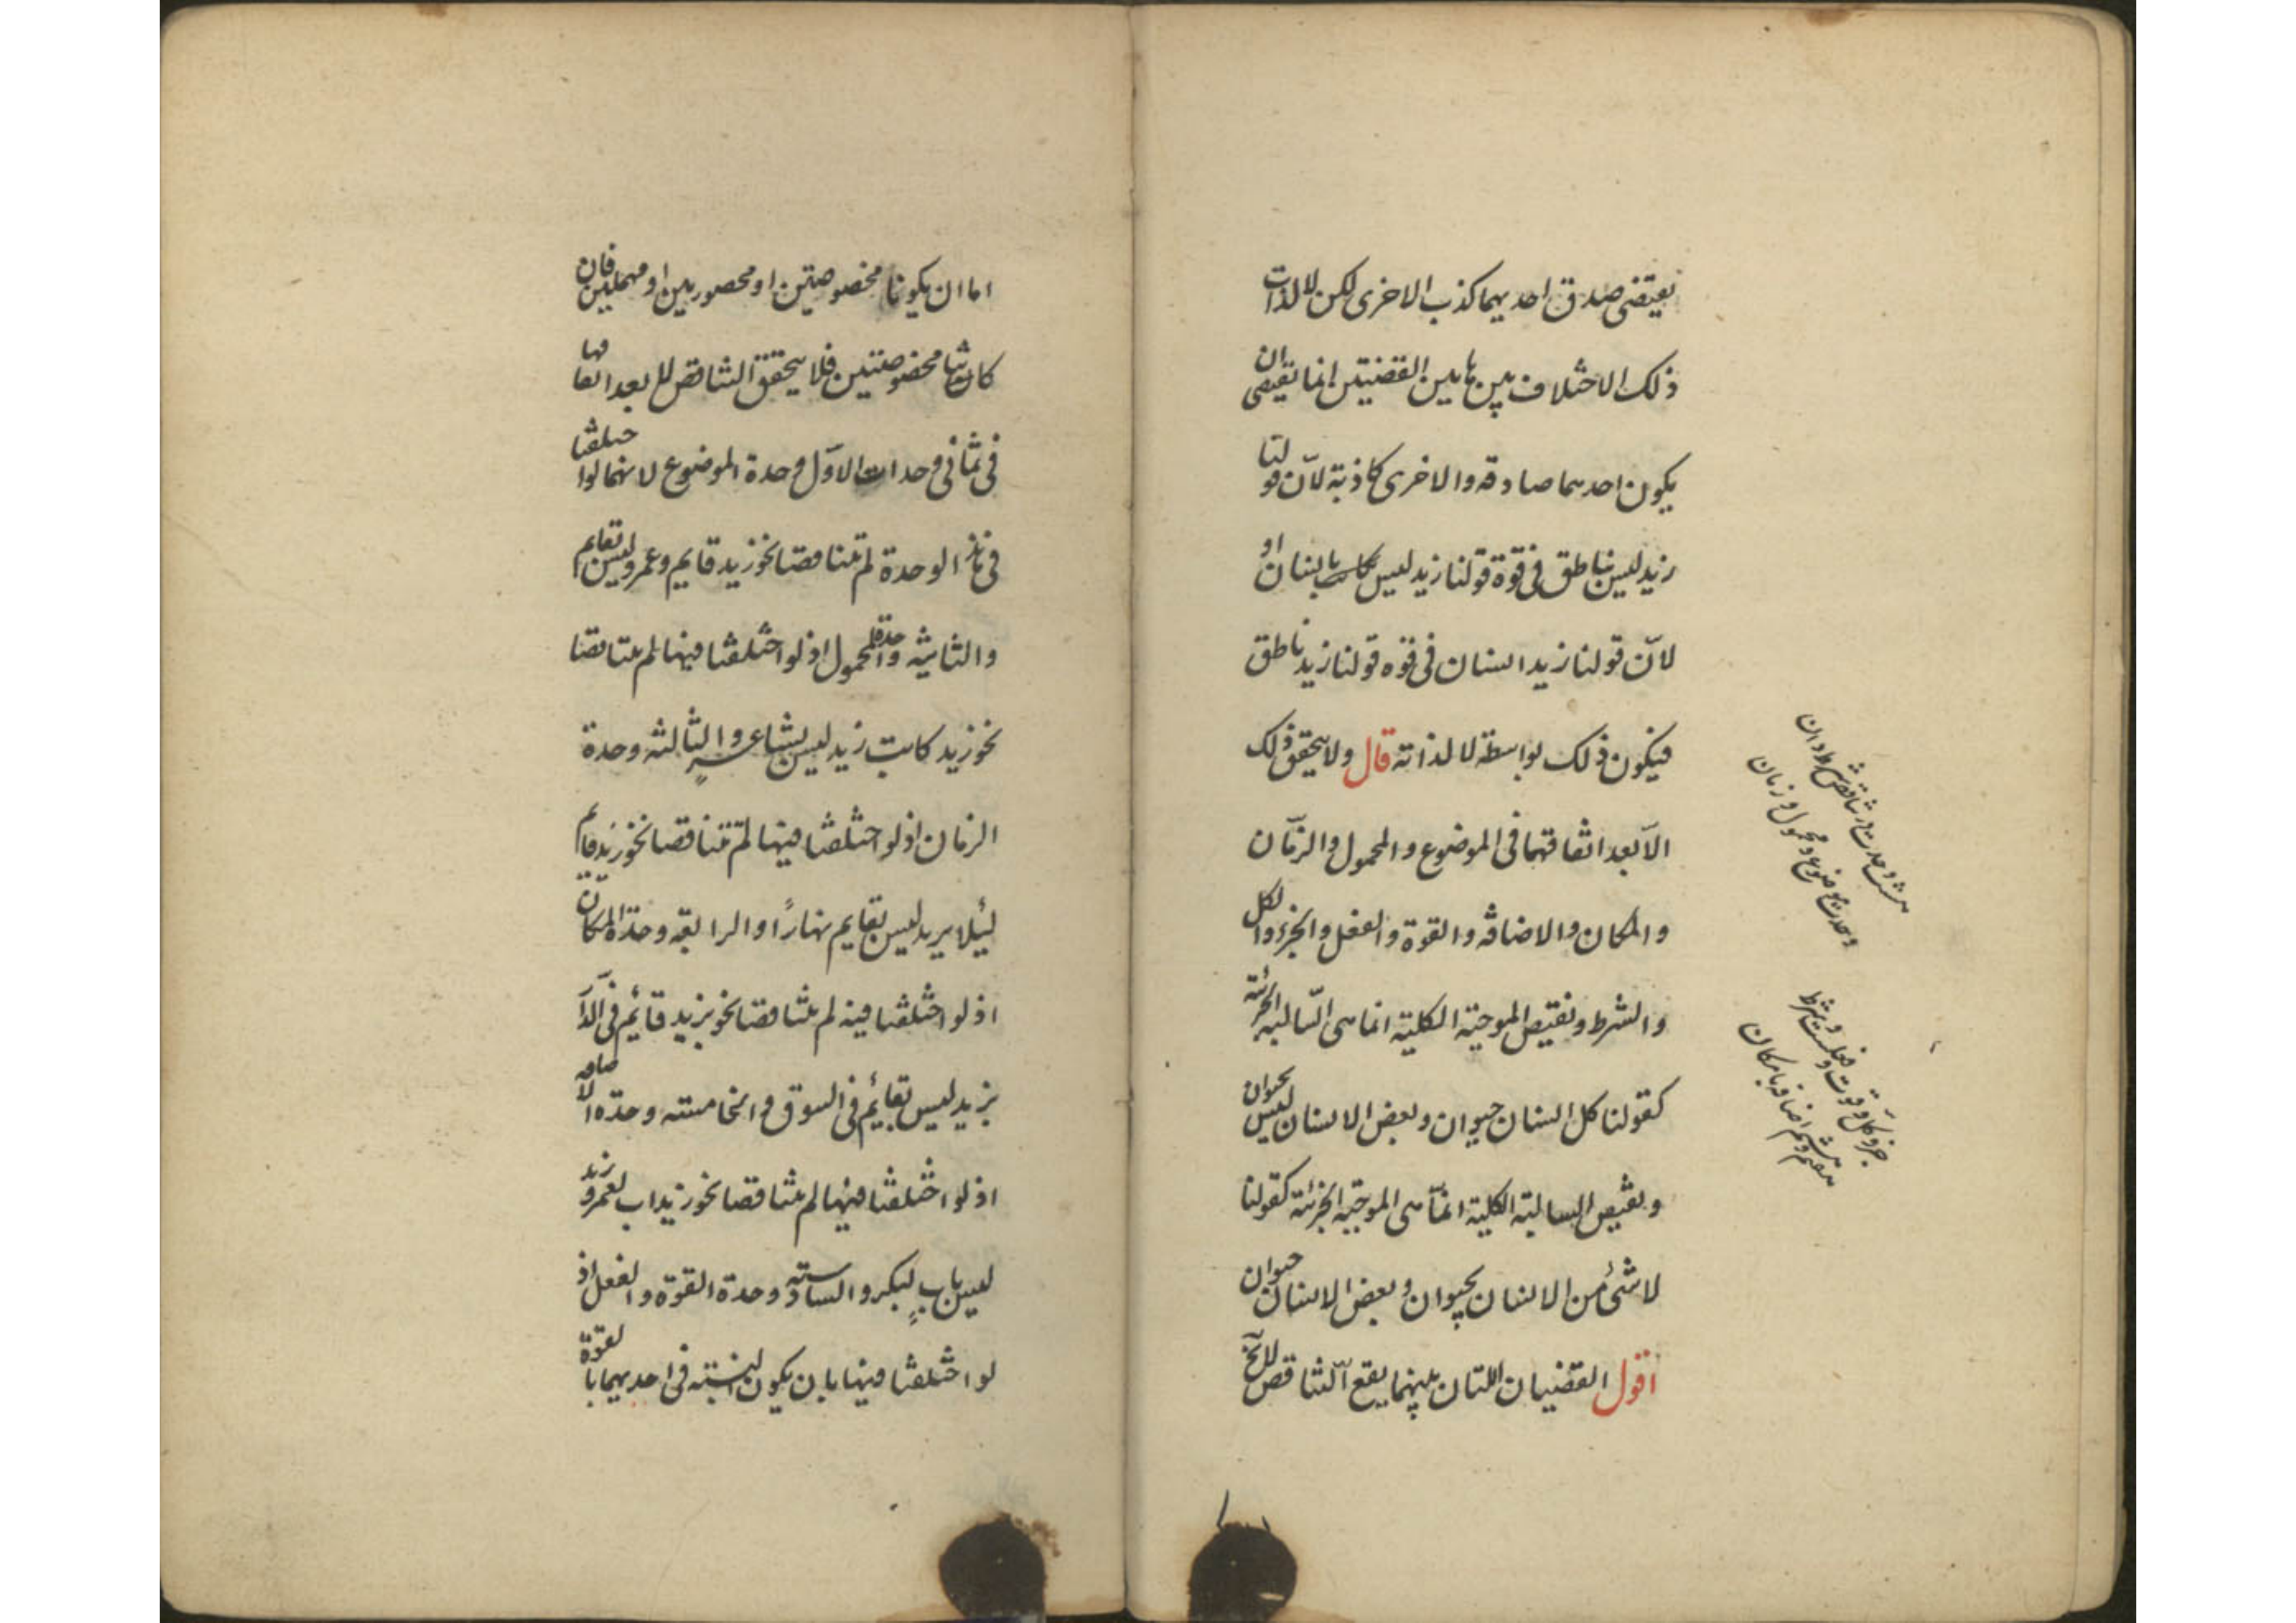 يقتضى صدق احديهما كذب الاخرى لكن لا لذات
ذلك الاختلاف بين هاتين القضيتين انما يقتضى ان
يكون احديهما صادقه والاخرى كاذبة لانّ قولنا
زيد ليس بناطق فى قوة قولنا زيد ليس بانسان او
لانّ قولنا زيد انسان فى قوه قولنا زيد ناطق
فيكون ذلك بواسطة لا لذاته قال ولا يتحقق ذلك
الاّ بعد اتفاقهما فى الموضوع و المحمول والزمان
و المكان والاضافه والقوة والفعل والجزء والكل
والشرط ونقيض الموجبة الكلية انما هى السّالبه الجزئية
كقولنا كل انسان حيوان وبعض الانسان ليس بحيوان
ونقيض السالبة الكلية انمّا هى الموجبة الجزئية كقولنا
لا شىء من الانسان بحيوان وبعض الانسان حيوان
اقول القضيتان اللتان بينهما يقع التناقض
هشت وحدت در تناقض شرط دان
وحدت موضوع ومحمول و زمان
جزو كلّ وقوت وفعلست و شرط
اضافه با مكان
اما ان يكونا مخصوصتين او محصورتين او مهملتين فان
كانتا مخصوصتين فلا يتحقق التناقض الا بعد اتفاقهما
فى ثمانى وحدات الاوّل وحدة الموضوع لانهما لو اختلفتا
فى هذه الوحدة لم تتناقضا نحو زيد قايم وعمرو ليس بقايم
والثانية وحدة المحمول اذ لو اختلفتا فيها لم يتناقضا
نحو زيد كاتب زيد ليس بشاعر والثالثه وحدة
الزمان اذ لو اختلفتا فيها لم تتناقضا نحو زيد قايم
ليلا زيد ليس بقايم نهارًا والرابعه وحدة المكان
اذ لو اختلفتا فيه لم يتناقضا نحو زيد قائم فى الدار
زيد ليس بقائم فى السوق والخامسته وحدة الاضافه
اذ لو اختلفتا فيها لم يتناقضا نحو زيد اب لعمرو زيد
ليس باب لبكر والسادسته وحدة القوة والفعل اذ
لو اختلفتا فيها بان يكون النسبته فى احديهما بالقوة